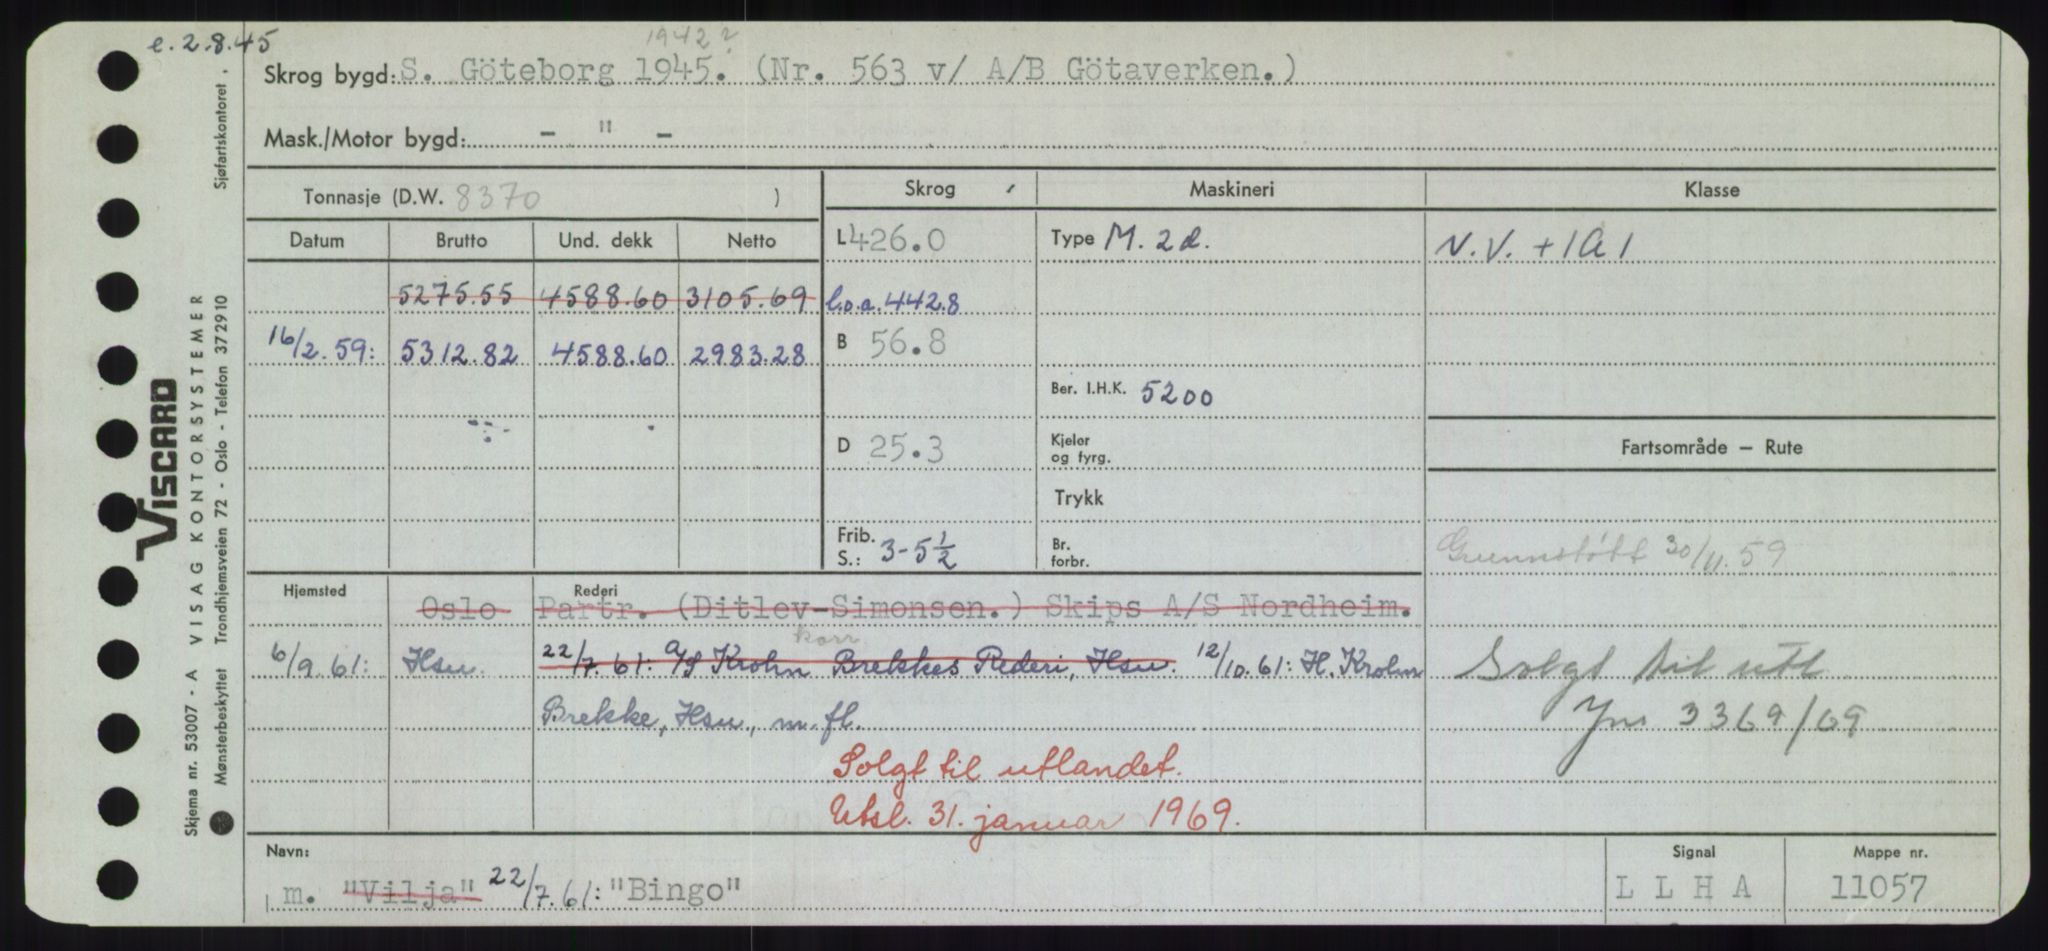 e. 2.8.45
1942?
Skrog bygd: S. Göteborg 1945. (Nr. 563 v/ A/B Götaverken.)
Mask./Motor bygd: - " -
Tonnasje (D.W. 8370 )
Skrog
Maskineri
Klasse
Datum Brutto Und. dekk Netto
L 426.0
Type M. 2 d.
N.V. + 1A1
5275.55 4588.60 3105.69
l.o.a. 442.8
16/2.59: 5312.82 4588.60 2983.28
B 56.8
Ber. I.H.K. 5200
D 25.3
Kjeler
og fyrg.
Fartsområde — Rute
Trykk
Frib.
S.: 3-5½
Br.
forbr.
Grunnstøtt 30/11.59
Hjemsted
Rederi
Oslo Partr. (Ditlev-Simonsen.) Skips A/S Nordheim.
korr
6/9.61: Hsu. 22/7.61: A/S Krohn Brekkes Rederi, Hsu. 12/10.61: H. Krohn
Brekke, Hsu., m. fl.
Solgt til utl
Jnr 3369/69
Solgt til utlandet.
Utsl. 31. januar 1969.
Navn:
m. "Vilja" 22/7.61: "Bingo"
Signal
LLHA
Mappe nr.
11057
VISCARD
Skjema nr. 53007 - A VISAG KONTORSYSTEMER
Mønsterbeskyttet Trondhjemsveien 72 - Oslo - Telefon 372910 Sjøfartskontoret.